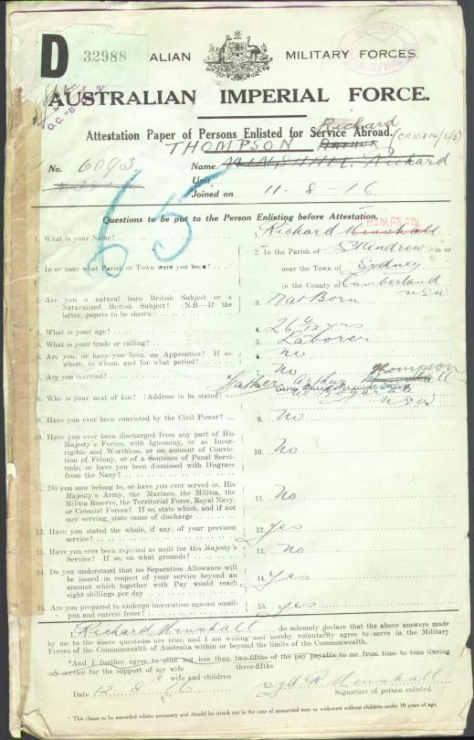 D 32988 ALIAN MILITARY FORCES.
AUSTRALIAN IMPERIAL FORCE.
Attestation Paper of Persons Enlisted for Service Abroad.
Richard
THOMPSON
No. 6093 Name Richard
Unit
Joined on 11-8-16
65
Questions to be put to the Person Enlisting before Attestation.
THOMPSON
1. What is your Name? 1. Richard Minshall
2. In or near what Parish or Town were you born? 2. In the Parish of St Andrews in or
near the Town of Sydney
in the County of Cumberland
N.S.W
3. Are you a natural born British Subject or a Naturalized British Subject? (N.B.—If the latter, papers to be shown) 3. Nat Born
4. What is your age? 4. 26 yrs
5. What is your trade or calling? 5. Laborer
6. Are you, or have you been, an Apprentice? If so, where, to whom, and for what period? 6. No
7. Are you married? 7. No
8. Who is your next of kin? (Address to be stated) Father Arthur Thompson
N.S.W
9. Have you ever been convicted by the Civil Power? 9. No
10. Have you ever been discharged from any part of His Majesty's Forces, with Ignominy, or as Incorrigible and Worthless, or on account of Conviction of Felony, or of a Sentence of Penal Servitude, or have you been dismissed with Disgrace from the Navy? 10. No
11. Do you now belong to, or have you ever served in, His Majesty's Army, the Marines, the Militia, the Militia Reserve, the Territorial Force, Royal Navy, or Colonial Forces? If so, state which, and if not now serving, state cause of discharge 11. No
12. Have you stated the whole, if any, of your previous service? 12. Yes
13. Have you ever been rejected as unfit for His Majesty's Service? If so, on what grounds? 13. No
14. Do you understand that no Separation Allowance will be issued in respect of your service beyond an amount which together with Pay would reach eight shillings per day 14. Yes
15. Are you prepared to undergo inoculation against small-pox and enteric fever? 15. Yes
I, Richard Minshall do solemnly declare that the above answers made
by me to the above questions are true, and I am willing and hereby voluntarily agree to serve in the Military
Forces of the Commonwealth of Australia within or beyond the limits of the Commonwealth.
*And I further agree to allot not less than two-fifths of the pay payable to me from time to time during
three-fifths
my service for the support of my wife
wife and children
Date 12.8.16 sgd R Minshall
Signature of person enlisted.
* This clause to be amended where necessary and should be struck out in the case of unmarried men or widowers without children under 18 years of age.